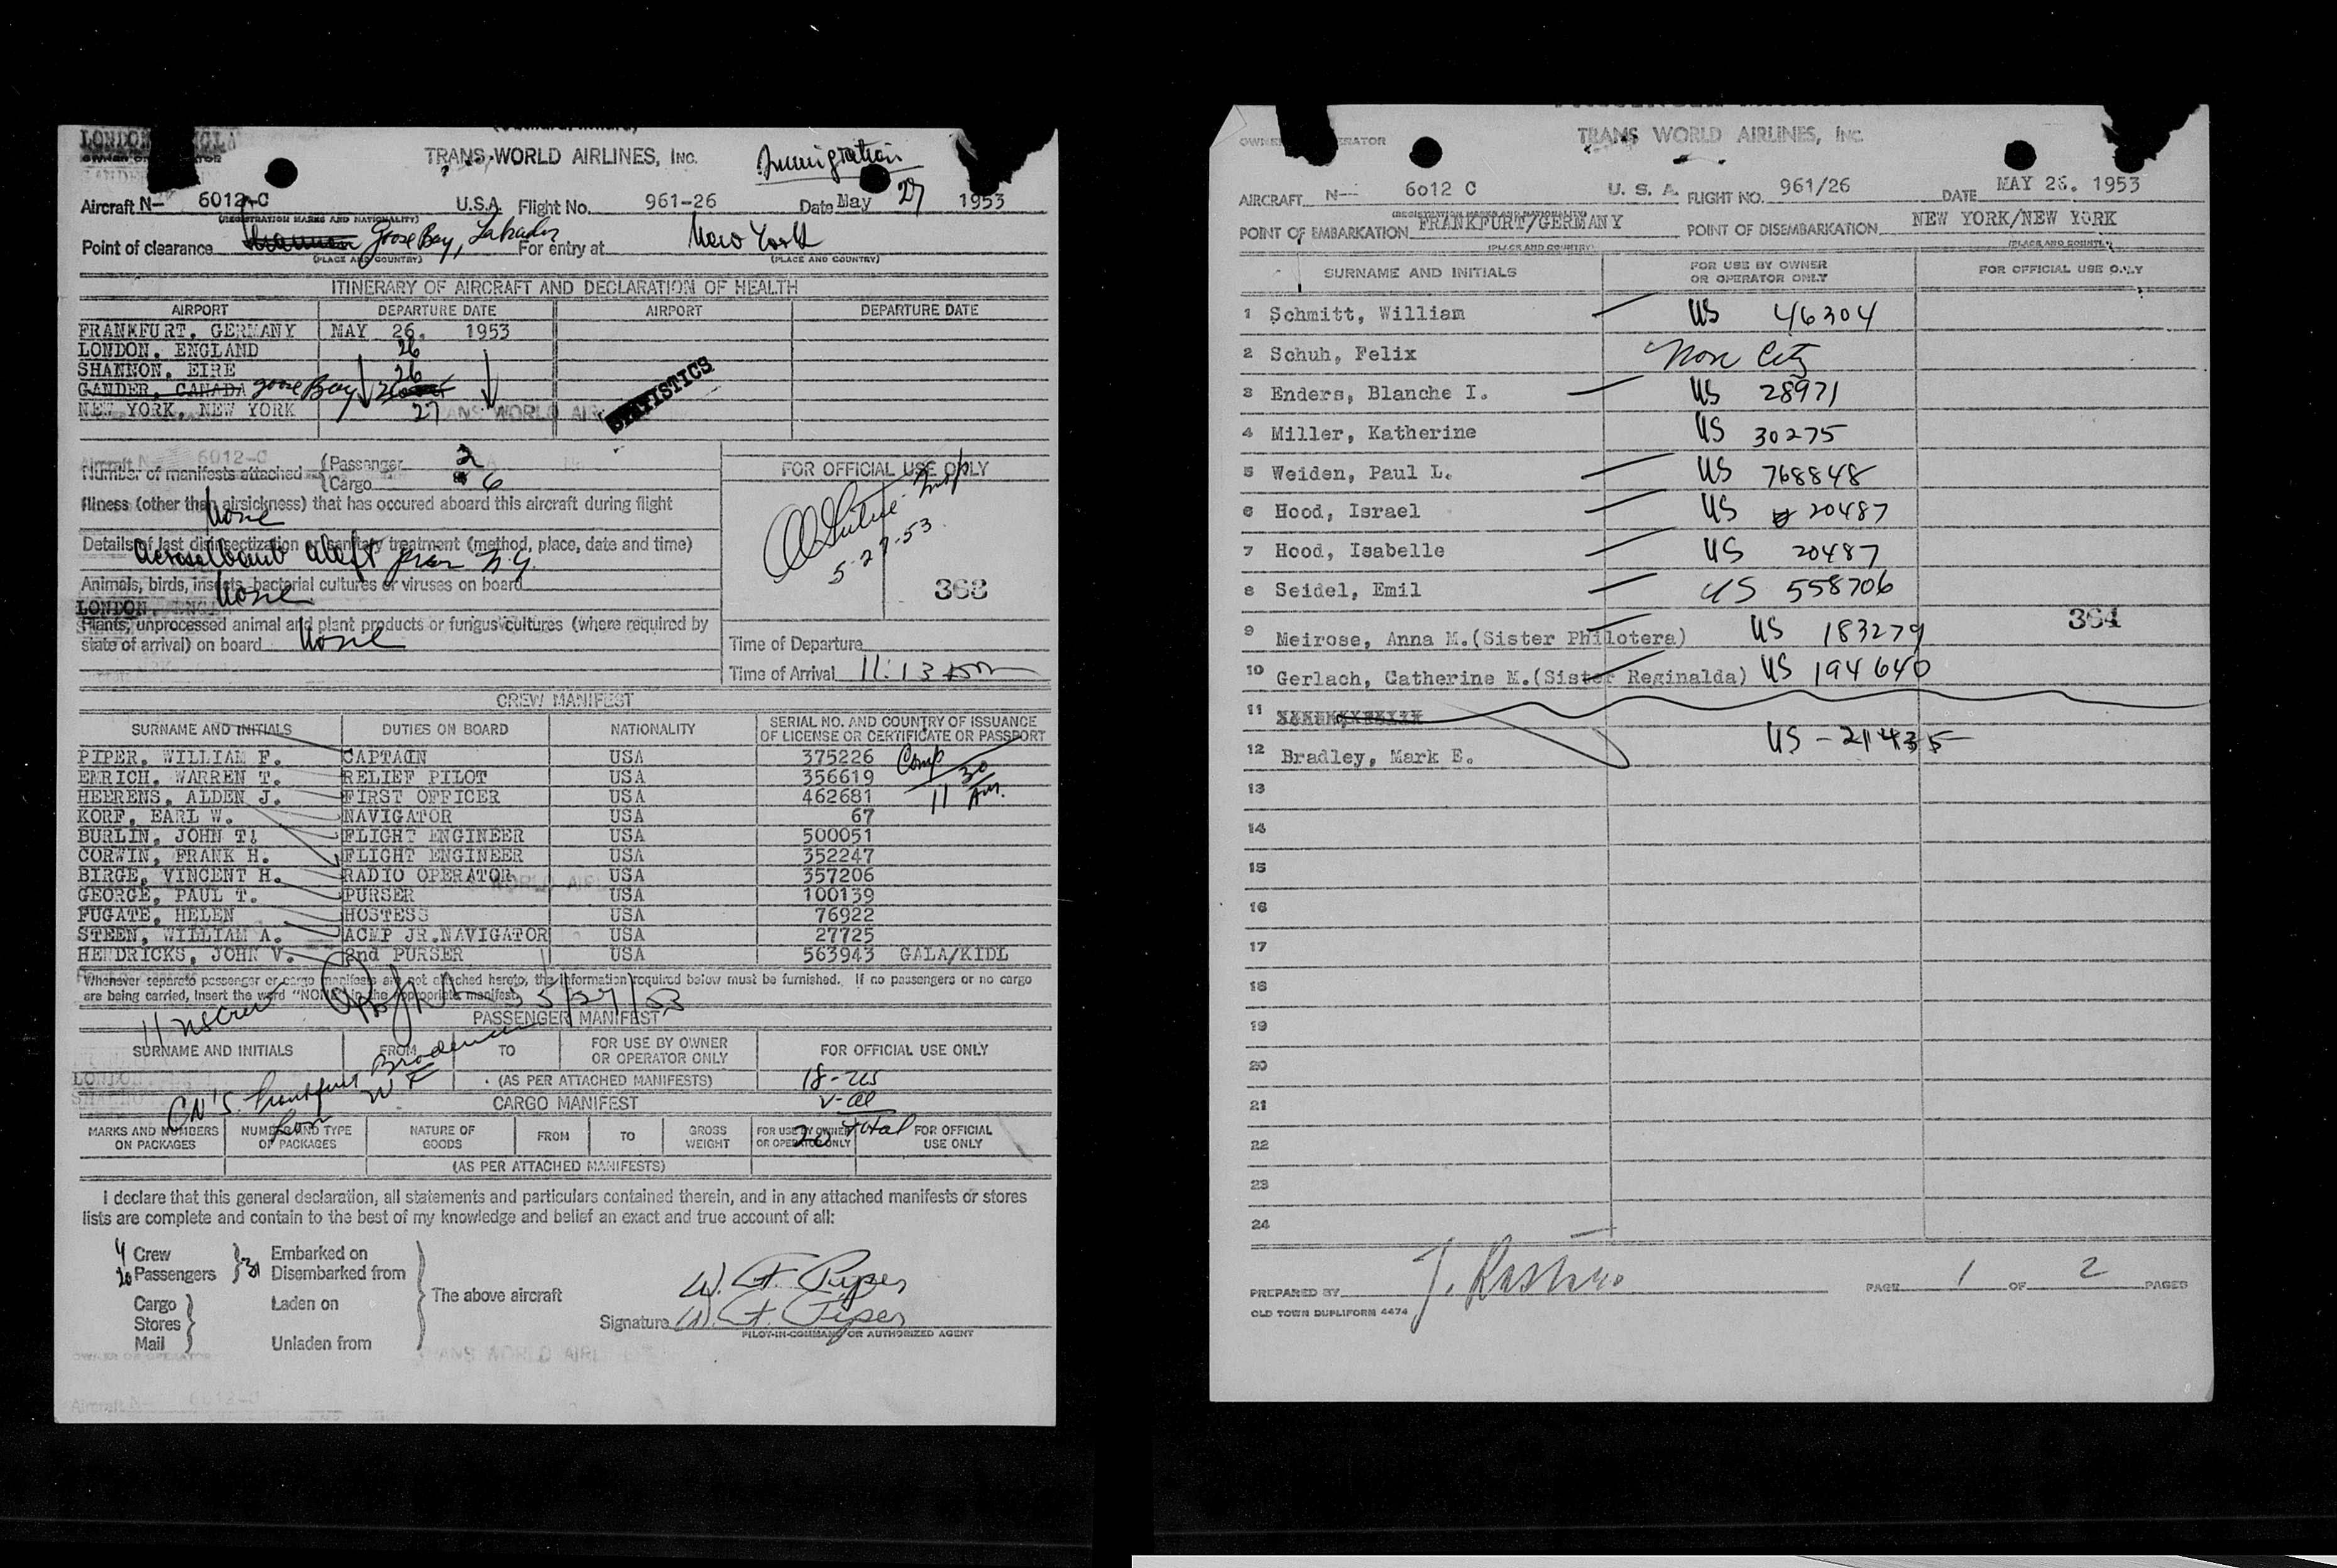 LONDON
OWNER OR OPERATOR
TRANS WORLD AIRLINES, INC.
Immigration
Aircraft N- 6012-C U.S.A. Flight No. 961-26 Date May 27 1953
(REGISTRATION MARKS AND NATIONALITY)
Point of clearance Shannon Goose Bay, Labrador For entry at New York
(PLACE AND COUNTRY) (PLACE AND COUNTRY)
ITINERARY OF AIRCRAFT AND DECLARATION OF HEALTH
AIRPORT DEPARTURE DATE AIRPORT DEPARTURE DATE
FRANKFURT, GERMANY MAY 26, 1953
LONDON, ENGLAND 26
SHANNON, EIRE 26
GANDER, CANADA Goose Bay
NEW YORK, NEW YORK 27
STATISTICS
Number of manifests attached (Passenger 2
(Cargo 6
FOR OFFICIAL USE ONLY
Illness (other than airsickness) that has occured aboard this aircraft during flight
None
Details of last disinsectization or sanitary treatment (method, place, date and time)
5-27-53
Animals, birds, insects, bacterial cultures or viruses on board
None
363
LONDON, ENGL
Plants, unprocessed animal and plant products or fungus cultures (where required by
state of arrival) on board None
Time of Departure
Time of Arrival 11:13 am
CREW MANIFEST
SURNAME AND INITIALS DUTIES ON BOARD NATIONALITY SERIAL NO. AND COUNTRY OF ISSUANCE
OF LICENSE OR CERTIFICATE OR PASSPORT
PIPER, WILLIAM F. CAPTAIN USA 375226 Comp
EMRICH, WARREN T. RELIEF PILOT USA 356619
HEERENS, ALDEN J. FIRST OFFICER USA 462681 11 30 Am.
KORF, EARL W. NAVIGATOR USA 67
BURLIN, JOHN T. FLIGHT ENGINEER USA 500051
CORWIN, FRANK H. FLIGHT ENGINEER USA 352247
BIRGE, VINCENT H. RADIO OPERATOR USA 357206
GEORGE, PAUL T. PURSER USA 100139
FUGATE, HELEN HOSTESS USA 76922
STEEN, WILLIAM A. ACMP JR.NAVIGATOR USA 27725
HENDRICKS, JOHN V. 2nd PURSER USA 563943 GALA/KIDL
Whenever separate passenger or cargo manifests are not attached hereto, the information required below must be furnished. If no passengers or no cargo
are being carried, insert the word "NONE" in the appropriate manifest.
11 US Crew 5/27/53
PASSENGER MANIFEST
SURNAME AND INITIALS FROM TO FOR USE BY OWNER
OR OPERATOR ONLY FOR OFFICIAL USE ONLY
(AS PER ATTACHED MANIFESTS) 18-US
CARGO MANIFEST
MARKS AND NUMBERS
ON PACKAGES NUMBER AND TYPE
OF PACKAGES NATURE OF
GOODS FROM TO GROSS
WEIGHT FOR USE BY OWNER
OR OPERATOR ONLY FOR OFFICIAL
USE ONLY
20 total
(AS PER ATTACHED MANIFESTS)
I declare that this general declaration, all statements and particulars contained therein, and in any attached manifests or stores
lists are complete and contain to the best of my knowledge and belief an exact and true account of all:
Crew Embarked on
20 Passengers 31 Disembarked from
Cargo Laden on The above aircraft
Stores
Mail Unladen from
W. F. Piper
Signature W. F. Piper
PILOT-IN-COMMAND OR AUTHORIZED AGENT
OWNER OR OPERATOR
TRANS WORLD AIRLINES, INC.
AIRCRAFT N- 6012 C U. S. A. FLIGHT NO. 961/26 DATE MAY 26. 1953
(REGISTRATION MARKS AND NATIONALITY)
POINT OF EMBARKATION FRANKFURT/GERMANY POINT OF DISEMBARKATION NEW YORK/NEW YORK
(PLACE AND COUNTRY) (PLACE AND COUNTRY)
SURNAME AND INITIALS FOR USE BY OWNER
OR OPERATOR ONLY FOR OFFICIAL USE ONLY
1 Schmitt, William US 46304
2 Schuh, Felix Non City
3 Enders, Blanche I. US 28971
4 Miller, Katherine US 30275
5 Weiden, Paul L. US 768848
6 Hood, Israel US 20487
7 Hood, Isabelle US 20487
8 Seidel, Emil US 558706
364
9 Meirose, Anna M.(Sister Philotera) US 183279
10 Gerlach, Catherine M.(Sister Reginalda) US 194640
11
12 Bradley, Mark E. US - 21435
13
14
15
16
17
18
19
20
21
22
23
24
PREPARED BY PAGE 1 OF 2 PAGES
OLD TOWN DUPLIFORM 4474